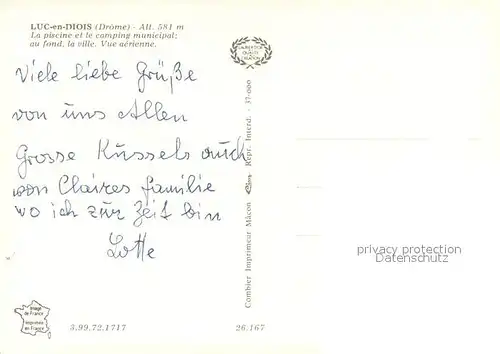 LUC-en-DIOIS (Drôme) - Alt. 581 m
La piscine et le camping municipal;
au fond, la ville. Vue aérienne.
Viele liebe Grüße
von uns Allen
Grosse Küssels auch
von Claires familie
wo ich zur Zeit bin
Lotte
Image
de France
Imprimée
en France
3.99.72.1717
26.167
Combier Imprimeur Mâcon
Repr. Interd. - 37-000
LAUREAT D'OR
QUALITE
CREATION
privacy protection
Datenschutz